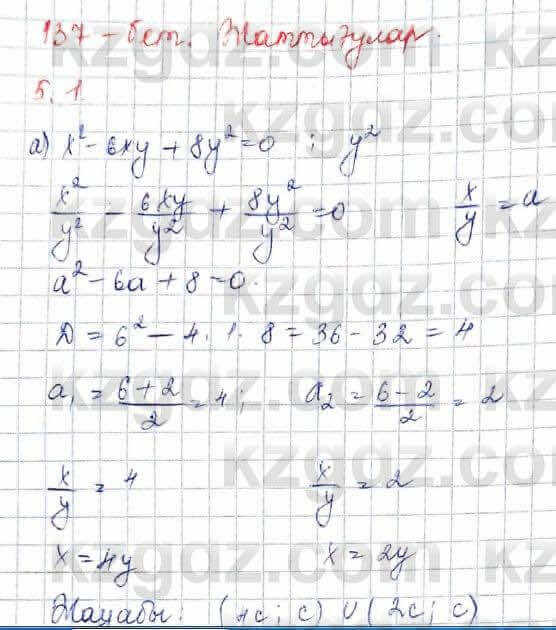 137 - бет. Жаттығулар.
5.1.
а) x² - 6xy + 8y² = 0 ; y²
x²/y² - 6xy/y² + 8y²/y² = 0    x/y = a
a² - 6a + 8 = 0.
D = 6² - 4 · 1 · 8 = 36 - 32 = 4
a₁ = (6+2)/2 = 4; a₂ = (6-2)/2 = 2
x/y = 4    x/y = 2
x = 4y    x = 2y
Жауабы: (4c; c) ∪ (2c; c)
kzgdz.com